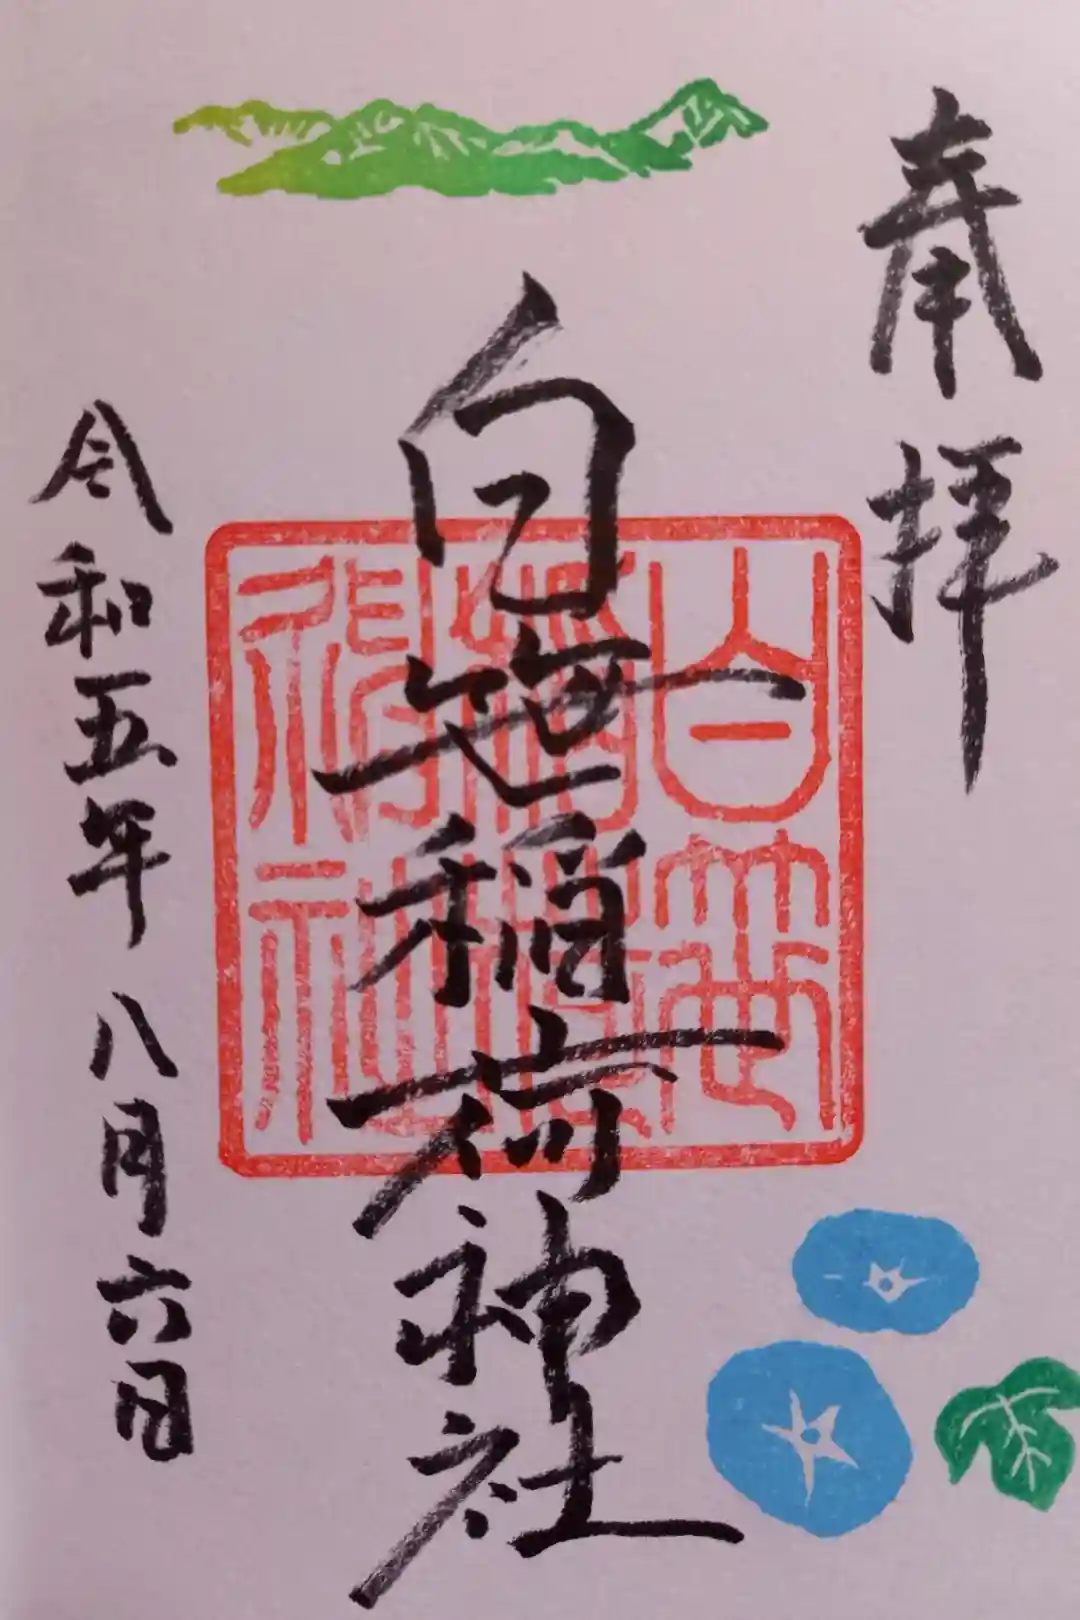 奉拝
白笹稲荷神社
令和五年八月六日
白笹稲荷神社